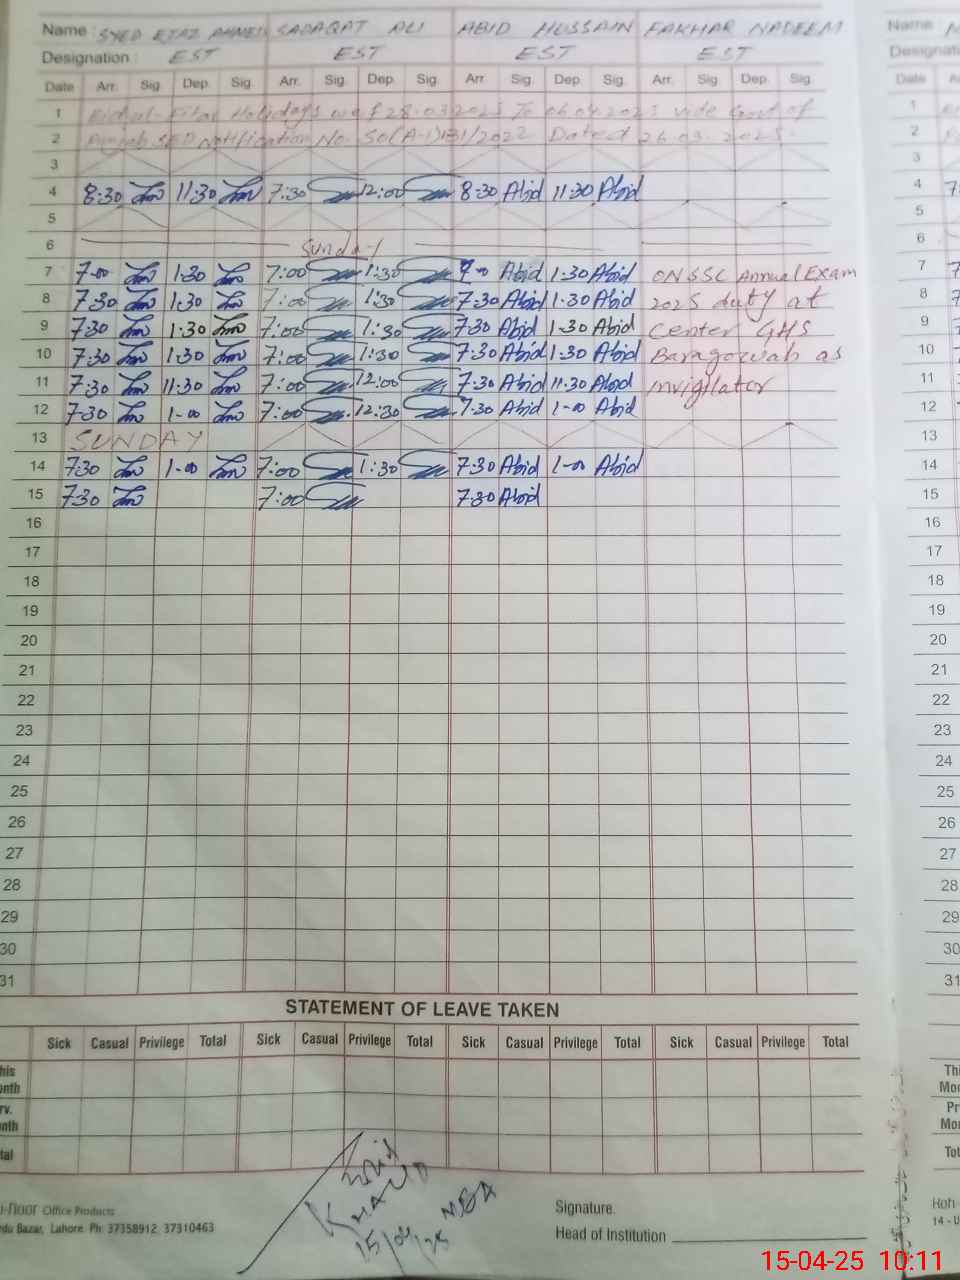 Name: SYED EJAZ AHMED SADAQAT ALI ABID HUSSAIN FAKHAR NADEEM
Designation: EST EST EST EST
Date Arr. Sig. Dep. Sig. Arr. Sig. Dep. Sig. Arr. Sig. Dep. Sig. Arr. Sig. Dep. Sig.
1 Eid-ul-Fitar Holidays w.e.f 28.03.2025 To 06.04.2025 vide Govt of
2 Punjab SED Notification No. SO(A-1) /2022 Dated 26.03.2025.
3
4 8:30 11:30 7:30 12:00 8:30 Abid 11:30 Abid
5
6 Sunday
7 7-00 1:30 7:00 1:30 7-00 Abid 1:30 Abid ON SSC Annual Exam
8 7:30 1:30 7:00 1:30 7:30 Abid 1:30 Abid 2025 duty at
9 7:30 1:30 7:00 1:30 7:30 Abid 1-30 Abid Center GHS
10 7:30 1:30 7:00 1:30 7:30 Abid 1:30 Abid Baragowah as
11 7:30 11:30 7:00 12:00 7.30 Abid 11.30 Abid invigilator
12 7:30 1-00 7:00 12:30 7.30 Abid 1-00 Abid
13 SUNDAY
14 7:30 1-00 7:00 1:30 7:30 Abid 1-00 Abid
15 7:30 7:00 7:30 Abid
16
17
18
19
20
21
22
23
24
25
26
27
28
29
30
31
STATEMENT OF LEAVE TAKEN
Sick Casual Privilege Total Sick Casual Privilege Total Sick Casual Privilege Total Sick Casual Privilege Total
KHALID
15/04/25 MEA
Office Products
Bazar, Lahore. Ph: 37358912, 37310463
Signature.
Head of Institution
Name
Date
1
2
3
4
5
6
7
8
9
10
11
12
13
14
15
16
17
18
19
20
21
22
23
24
25
26
27
28
29
30
31
15-04-25 10:11